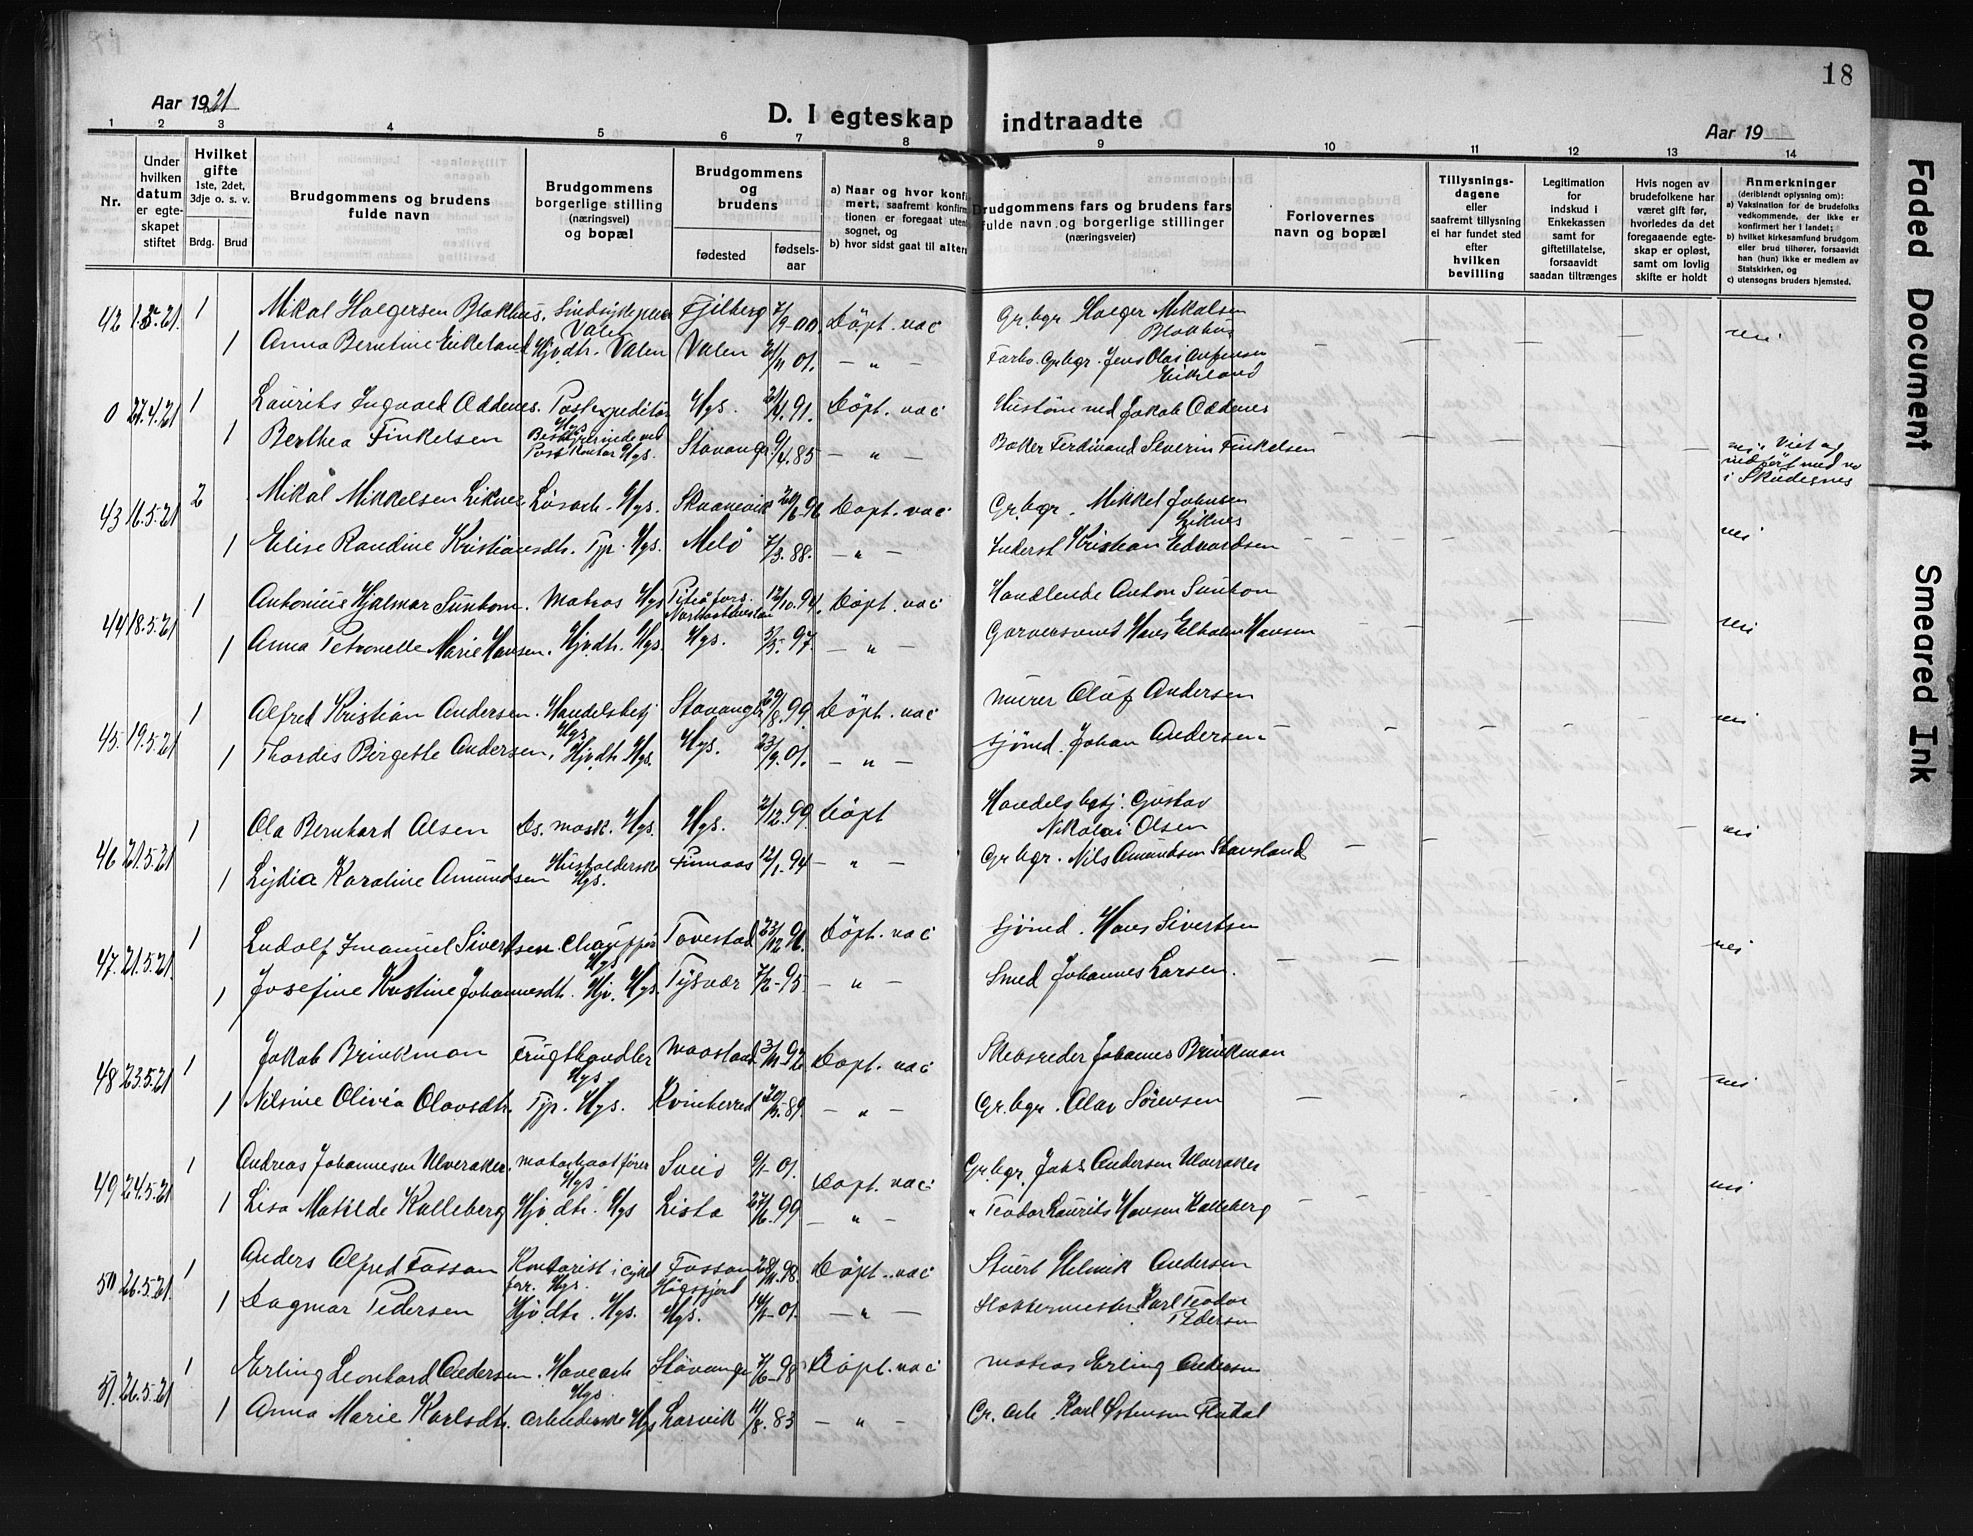 18
Aar 1921
D. I egteskap indtraadte
Aar 19
1 2 3 4 5 6 7 8 9 10 11 12 13 14
Nr.
Under hvilken datum er egteskapet stiftet
Hvilket gifte 1ste, 2det, 3dje o. s. v.
Brdg. Brud
Brudgommens og brudens fulde navn
Brudgommens borgerlige stilling (næringsvei) og bopæl
Brudgommens og brudens
fødested
fødselsaar
a) Naar og hvor konfirmert, saafremt konfirmationen er foregaat utensognet, og
b) hvor sidst gaat til alters
Brudgommens fars og brudens fars fulde navn og borgerlige stillinger (næringsveier)
Forlovernes navn og bopæl
Tillysningsdagene eller saafremt tillysning ei har fundet sted efter hvilken bevilling
Legitimation for indskud i Enkekassen samt for giftetillatelse, forsaavidt saadan tiltrænges
Hvis nogen av brudefolkene har været gift før, hvorledes da det foregaaende egteskap er opløst, samt om lovlig skifte er holdt
Anmerkninger (deriblandt oplysning om):
a) Vaksination for de brudefolks vedkommende, der ikke er konfirmert her i landet;
b) hvilket kirkesamfund brudgom eller brud tilhører, forsaavidt han (hun) ikke er medlem av Statskirken, og
c) utensogns bruders hjemsted.
42 1 Mikal Holgersen Blokhus. Fjelberg 7/9-00 Døpt. vac Gr.bgr Holger Mikalsen Blokhus nei
1 Anna Berntine Eikeland Hjv.dtr. Valen Valen 21/11 01. — " — Forhv. Gr.bgr. Jens Olai Eikeland
0 27.4.21 1 Laurits Ingvald Oddenes. Postexpeditør Hgs. Hgs. 21/4.91. Døpt. vac Jakob Oddenes
1 Berthea Finkelsen Bestyrerinde ved Postkontor Hgs. Stavanger 9/4.85 — " — Baker Ferdinand Severin Finkelsen nei. Viet og indført med no i Skudesnes
43 16.5.21 2 Mikal Mikkelsen Liknes Løsarb. Hgs. Skaanevik 20/6-96 Døpt. vac Gr.bgr. Mikkel Johnsen Liknes
1 Elise Randine Kristiansdtr. Tjp. Hgs. Melø 7/3.88. — " — Inderst Kristian Edvardsen nei
44 18.5.21 1 Antonius Hjalmar Sunbom. Matros Hgs 12/10.94. Døpt. vac Handlende Anton Sunbom
1 Anna Petronelle Marie Hansen. Hjv.dtr. Hgs. Hgs. 5/5-97. — " — Garversvend Hans Elholm Hansen nei
45. 19.5.21 1 Alfred Kristian Andersen. Handelsbetj Hgs. Stavanger 29/8.99. Døpt. vac Murer Oluf Andersen
1 Thordis Birgette Andersen. Hjv.dtr Hgs. Hgs. 23/9.01. — " — Sjømd. Johan Andersen nei
46 21.5.21 1 Ola Bernhard Olsen Ds. mask. Hgs. Hgs. 2/12.99. Døpt Handelsbetj. Gustav Nikolai Olsen nei
1 Lydia Karoline Amundsen Husholderske Hgs. Finnaas 12/1.94 — " — Gr.bgr. Nils Amundsen Stavsland
47. 21.5.21. 1 Ludolf Imanuel Sivertsen. Chauffør Hgs Torvestad 23/12.96. Døpt. vac Sjømd. Hans Sivertsen nei
1 Josefine Kristine Johannesdtr. Hjv. Hgs. Tysvær 7/2-95. — " — Smed Johannes Larsen.
48 23.5.21 1 Jakob Brinkman Frugthandler Hgs. Maasland 3/11-92 Døpt. vac Skibsreder Johannes Brinkman
1 Nilsine Olivia Olavsdtr. Tjp. Hgs. Kvinherred 20/3.89. — " — Gr.bgr. Olav Sørensen nei
49 24.5.21 1 Andreas Johannesen Ulveraker. Motorbaatfører Hgs. Sveio 9/1-01. Døpt. vac. Gr.bgr. Johs Andersen Ulveraker
1 Lisa Matilde Kalleberg Hjv.dtr. Hgs Lista 27/6-99 — " — " Teodor Laurits Hansen Kalleberg nei
50 26.5.21. 1 Anders Alfred Fossan Kontorist i cykelforr. Hgs. Fossan Høgsfjord 28/11.98. Døpt. vac Stuert Helmik Andersen
1 Dagmar Pedersen Hjv.dtr. Hgs. Hgs. 14/1-01. — " — Slaktermester Karl Teodor Pedersen
51. 26.5.21 1 Erling Leonhard Andersen. Havearb Hgs. Stavanger 7/6-98 Døpt. vac Matros Erling Andersen
1 Anna Marie Karlsdtr. Arbeiderske Hgs Larvik 11/8.83 — " — Gr. Arb. Karl Østensen
Faded Document
Smeared Ink